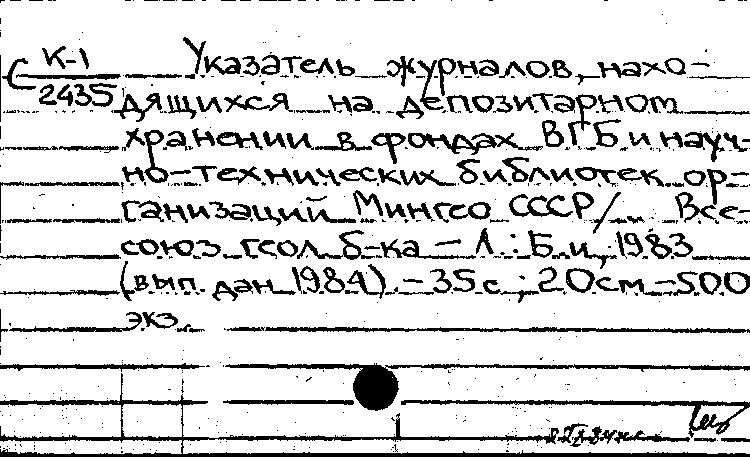 С К-1 Указатель журналов, нахо-
2435 дящихся на депозитарном
хранении в фондах ВГБ и науч-
но-технических библиотек ор-
ганизаций Мингео СССР/... Все-
союз. геол. б-ка - Л.: Б.и., 1983
(вып. дан. 1984). - 35 с.; 20 см - 500
экз.